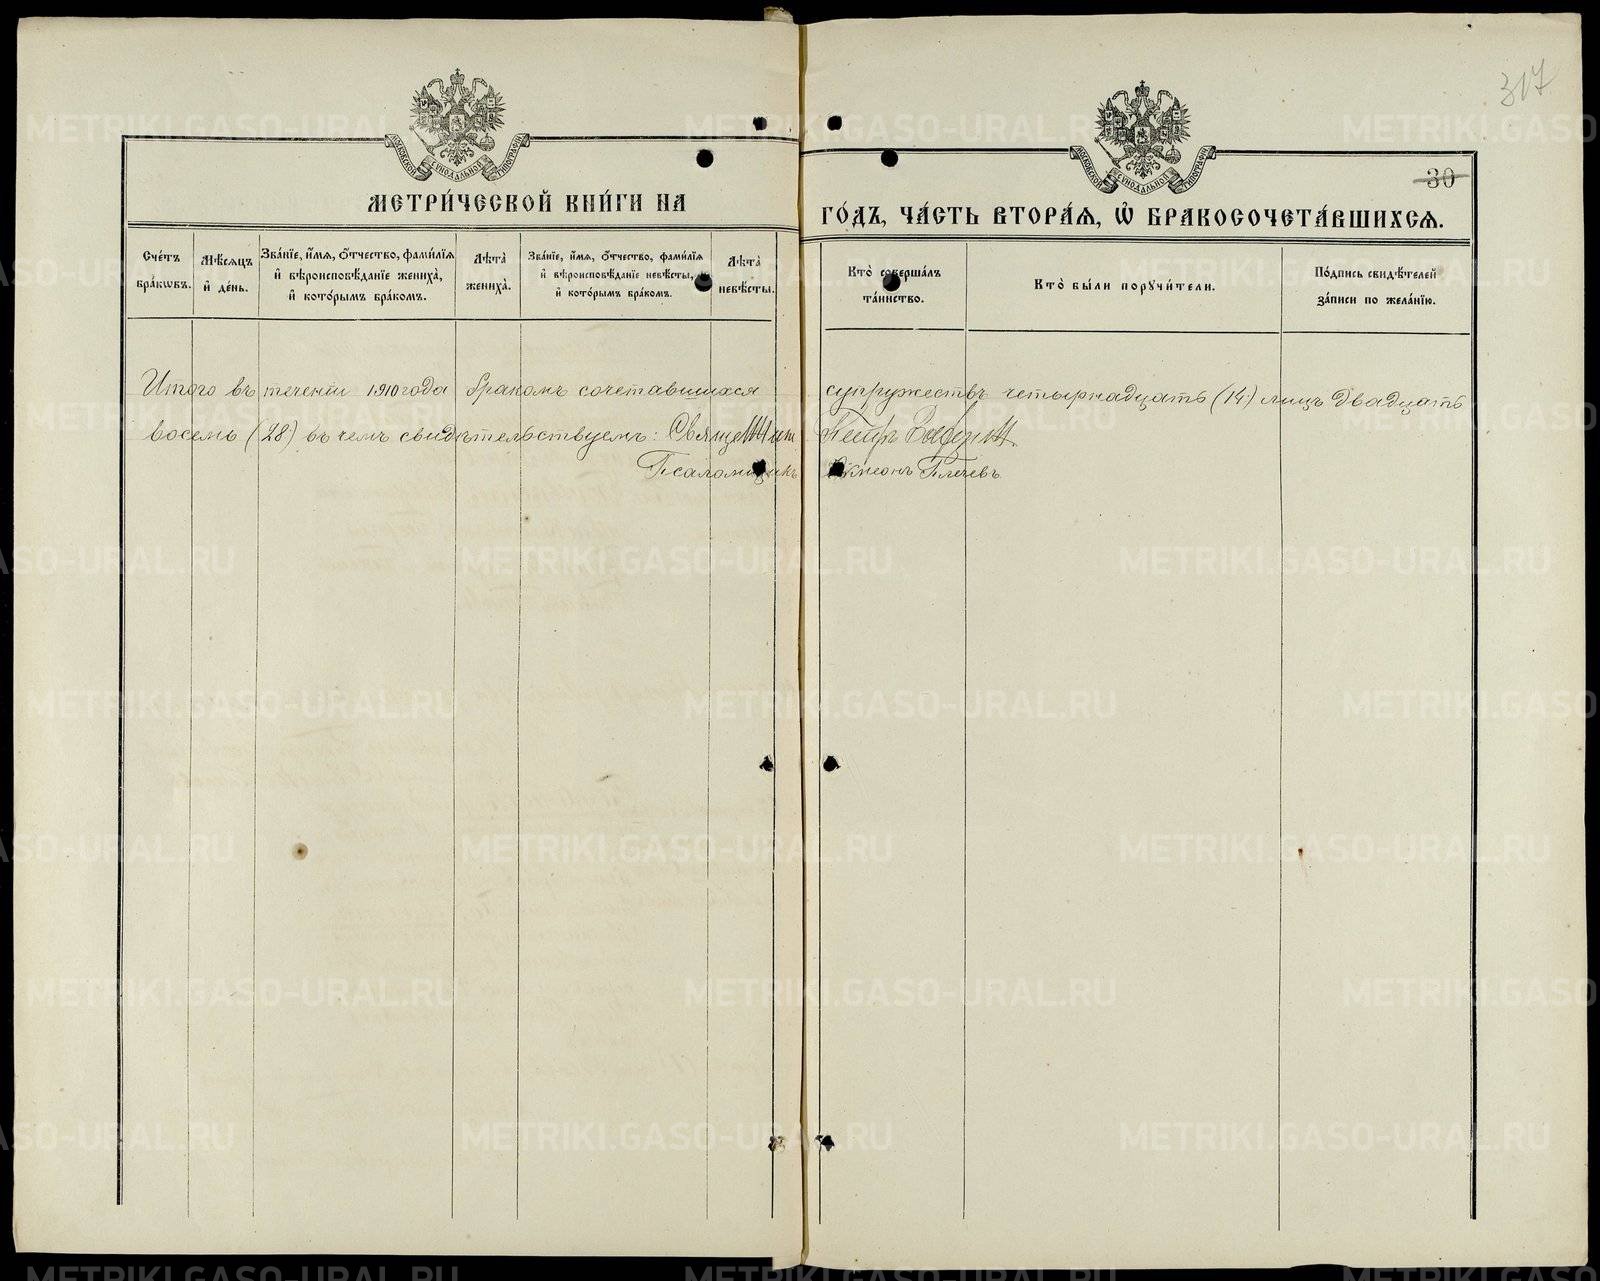 317
МОСКОВСКОЙ СУНОДАЛЬНОЙ ТИПОГРАФІИ
МОСКОВСКОЙ СУНОДАЛЬНОЙ ТИПОГРАФІИ
30
МЕТРИ́ЧЕСКОЙ КНИ́ГИ НА ГО́ДЪ, ЧА́СТЬ ВТОРА́Я, Ѡ҆ БРАКОСОЧЕТА́ВШИХСЯ.
Сче́тъ бра́кѡвъ.
Мѣ́сяцъ и҆ де́нь.
Зва́нїе, и҆́мя, ѻ҆́тчество, фами́лїя и҆ вѣроисповѣ́данїе жениха̀, и҆ кото́рымъ бра́комъ.
Лѣта̀ жениха̀.
Зва́нїе, и҆́мя, ѻ҆́тчество, фами́лїя и҆ вѣроисповѣ́данїе невѣ́сты, и҆ кото́рымъ бра́комъ.
Лѣта̀ невѣ́сты.
Кто̀ соверша́лъ та́инство.
Кто̀ бы́ли порꙋчи́тели.
По́дпись свидѣ́телей за́писи по жела́нїю.
Итого въ теченіи 1910 года бракомъ сочетавшихся супружествъ четырнадцать (14) лицъ двадцать
восемь (28) въ чемъ свидѣтельствуемъ: Священник Петръ
Псаломщикъ Симеонъ Плечевъ
METRIKI.GASO-URAL.RU